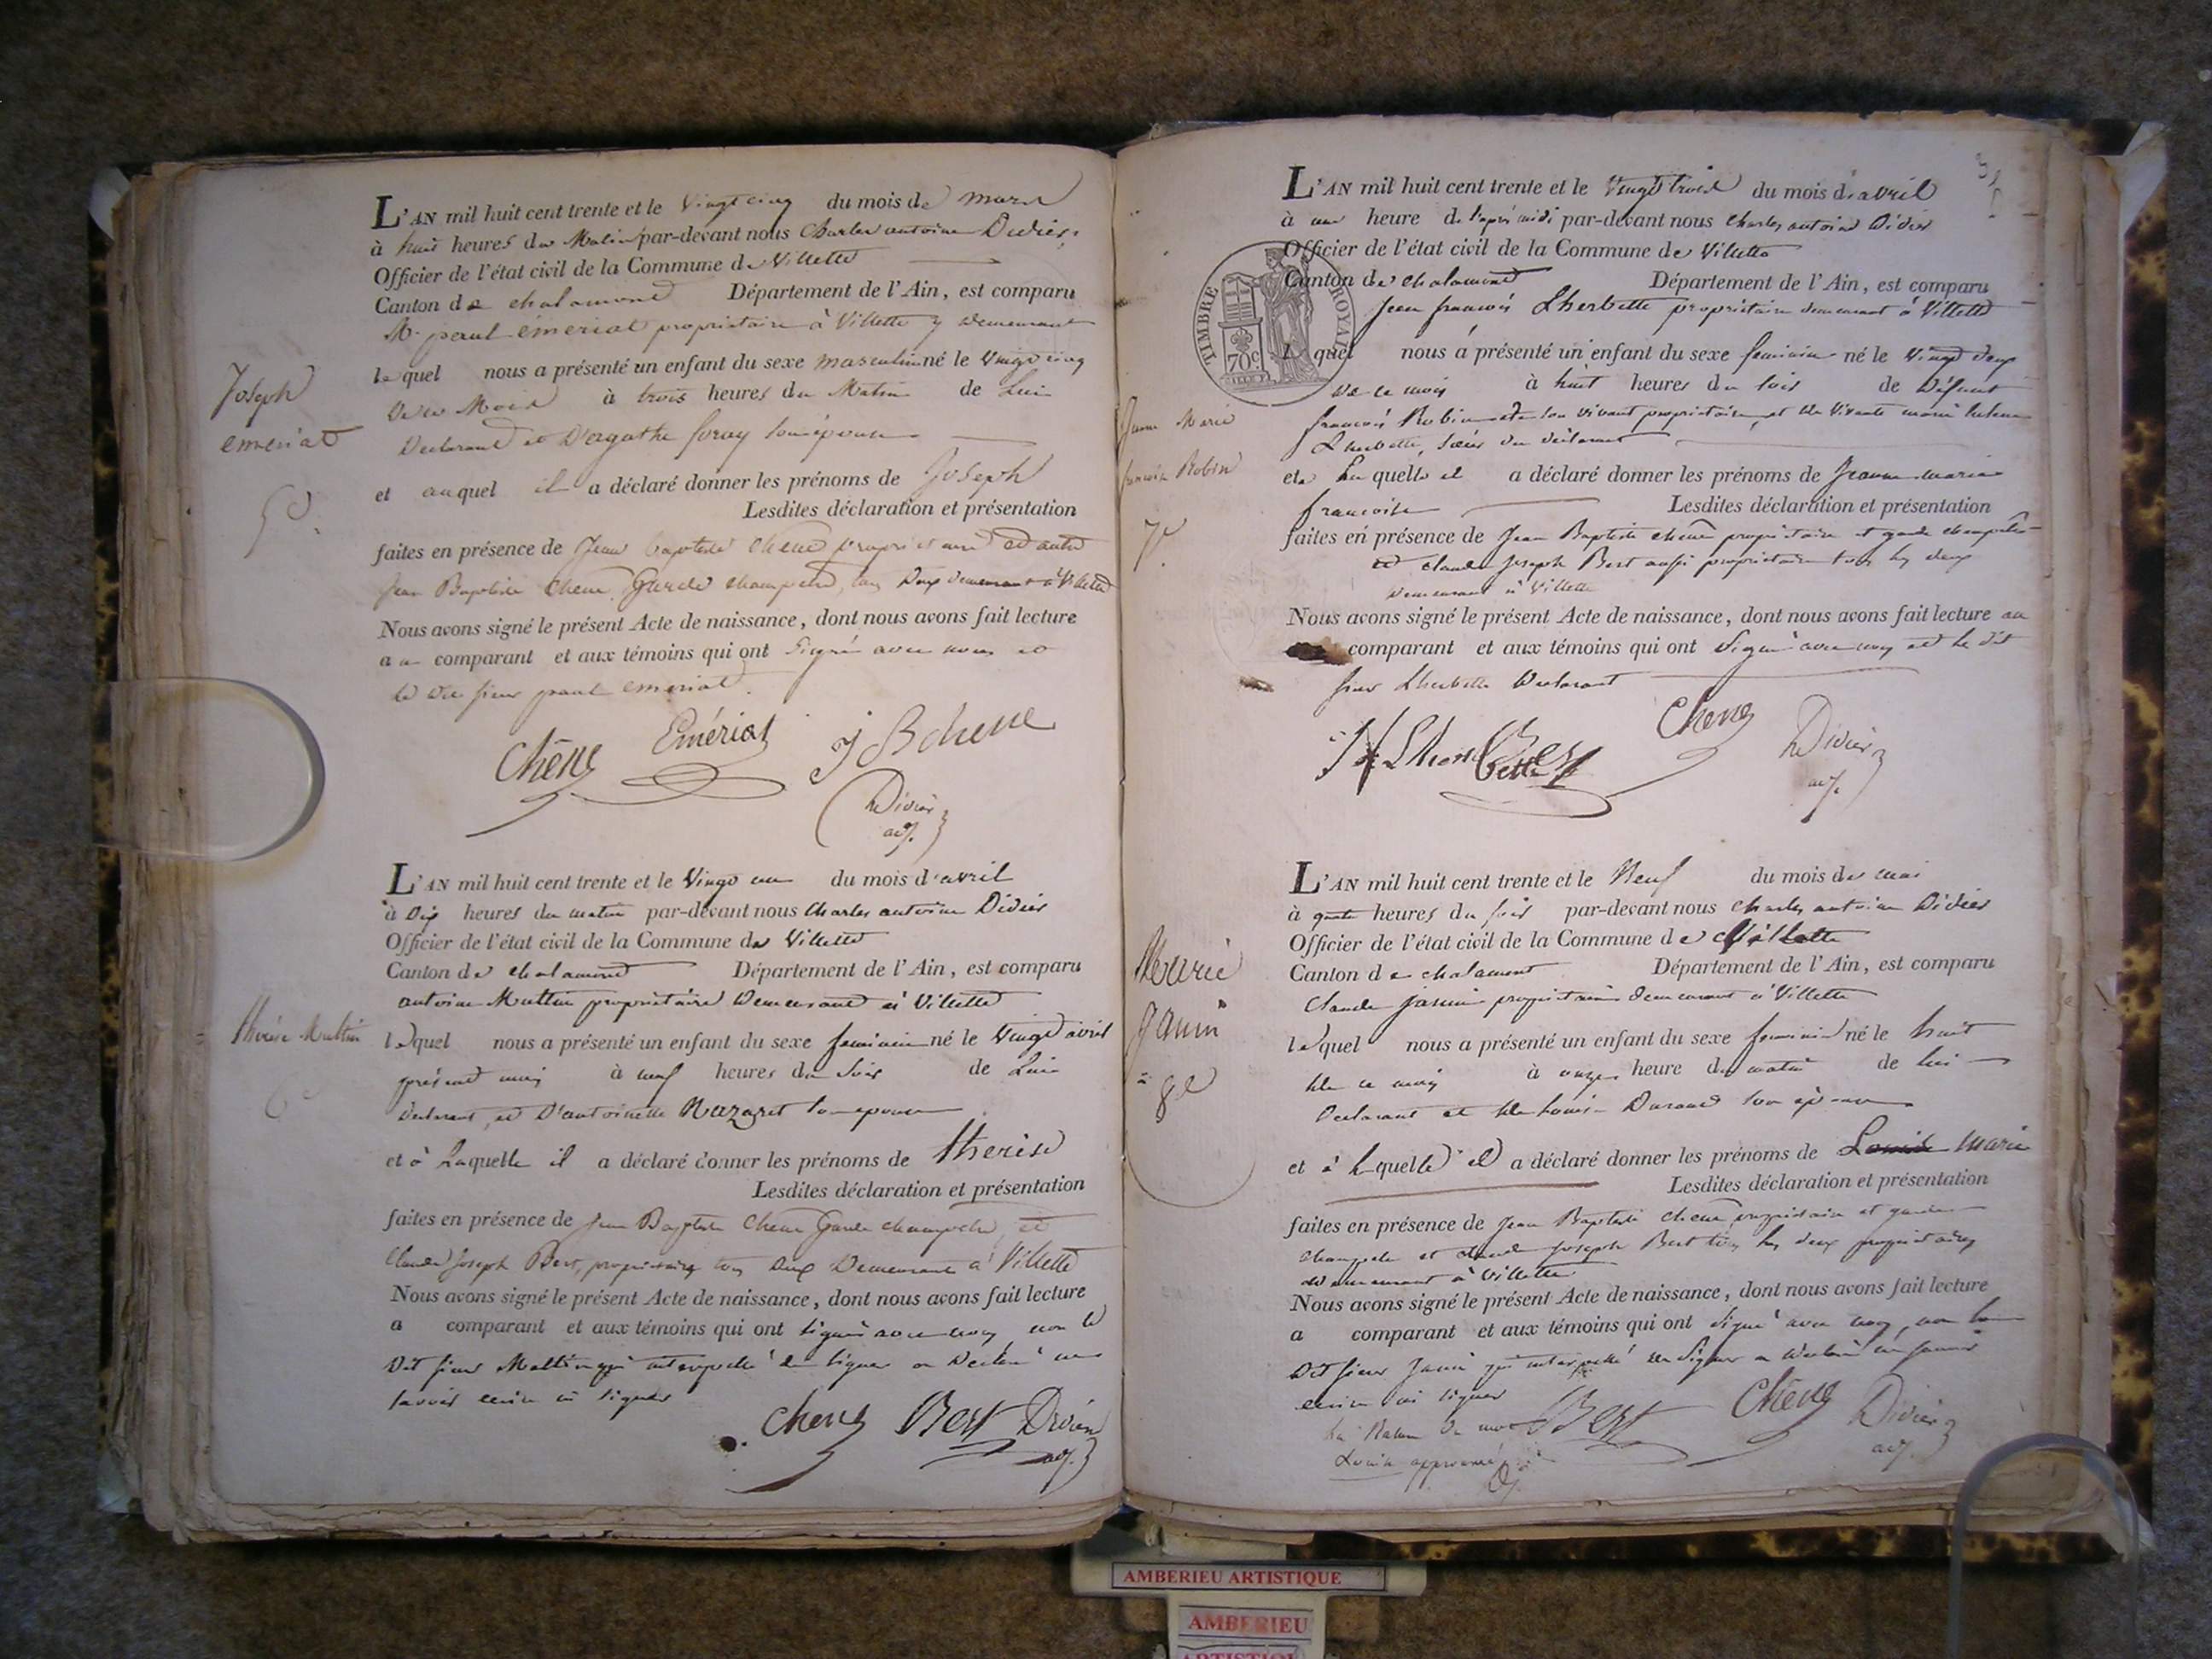 Joseph
emeriat
5e.
L'AN mil huit cent trente et le Vingt cinq du mois de mars
à huit heures du Matin par-devant nous Charles antoine Didier
Officier de l'état civil de la Commune de Villette
Canton de chalamont Département de l'Ain, est comparu
Mr. paul émeriat propriétaire à Villette y demeurant
lequel nous a présenté un enfant du sexe masculin né le Vingt cinq
de ce Mois à trois heures du Matin de Lui
Declarant et D'agathe son épouse
et auquel il a déclaré donner les prénoms de Joseph
Lesdites déclaration et présentation
faites en présence de Jean baptiste Chene propriétaire et autre
Jean Baptiste Chene Garde champetre, tous Deux demeurant à Villette
Nous avons signé le présent Acte de naissance, dont nous avons fait lecture
au comparant et aux témoins qui ont Signé avec nous et
le dit sieur paul emeriat.
Chêne Emériat J B chene
Didier
adj.
thérèse Muttin
6
L'AN mil huit cent trente et le Vingt un du mois d'avril
à Dix heures du matin par-devant nous Charles antoine Didier
Officier de l'état civil de la Commune de Villette
Canton de chalamont Département de l'Ain, est comparu
antoine Muttin propriétaire Demeurant à Villette
lequel nous a présenté un enfant du sexe feminin né le Vingt avril
présent mois à neuf heures du Soir de Lui
declarant, et D'antoinette Nazaret son epouse
et à Laquelle il a déclaré donner les prénoms de therèse
Lesdites déclaration et présentation
faites en présence de Jean Baptiste Chene Garde champetre, et
Claude Joseph Bert, propriétaires tous deux Demeurant à Villette
Nous avons signé le présent Acte de naissance, dont nous avons fait lecture
a comparant et aux témoins qui ont signé avec nous non le
Dit sieur Muttin qui interpellé de signer a Declaré ne
savoir ecrire ni signer
Chene Bert Didier
adj.
Jeanne Marie
francoise Robin
7e.
TIMBRE ROYAL
70c.
L'AN mil huit cent trente et le Vingt trois du mois d'avril
à une heure de l'après midi par-devant nous Charles antoine Didier
Officier de l'état civil de la Commune de Villette
Canton de chalamont Département de l'Ain, est comparu
Jean francois Lherbette propriétaire demeurant à Villette
lequel nous a présenté un enfant du sexe feminin né le Vingt deux
de ce mois à huit heures du soir de Défunt
francois Robin de son vivant propriétaire, et de Vivante marie
Lherbette, soeur du déclarant
et a Laquelle il a déclaré donner les prénoms de Jeanne marie
francoise Lesdites déclaration et présentation
faites en présence de Jean Baptiste chene propriétaire et garde champêtre
et claude Joseph Bert aussi propriétaire tous les deux
demeurant à Villette
Nous avons signé le présent Acte de naissance, dont nous avons fait lecture au
comparant et aux témoins qui ont signé avec nous et le dit
sieur Lherbette Declarant
Lherbette Bert Chene Didier
adj.
Marie
Janin
8e
L'AN mil huit cent trente et le Neuf du mois de mai
à quatre heures du soir par-devant nous Charles antoine Didier
Officier de l'état civil de la Commune de Villette
Canton de chalamont Département de l'Ain, est comparu
Claude janin propriétaire demeurant à Villette
lequel nous a présenté un enfant du sexe feminin né le huit
de ce mois à onze heure du matin de lui
Declarant et de Louise Durand son épouse
et à laquelle il a déclaré donner les prénoms de Louise Marie
Lesdites déclaration et présentation
faites en présence de Jean Baptiste chene propriétaire et garde
champetre et claude Joseph Bert tous les deux propriétaires
demeurant à Villette
Nous avons signé le présent Acte de naissance, dont nous avons fait lecture
a comparant et aux témoins qui ont signé avec nous, non le
Dit sieur Janin qui interpellé de signer a declaré ne savoir
ecrire ni signer
la Rature du mot Bert Chêne Didier
Louise approuvée adj.
AMBERIEU ARTISTIQUE
AMBERIEU
ARTISTIQUE